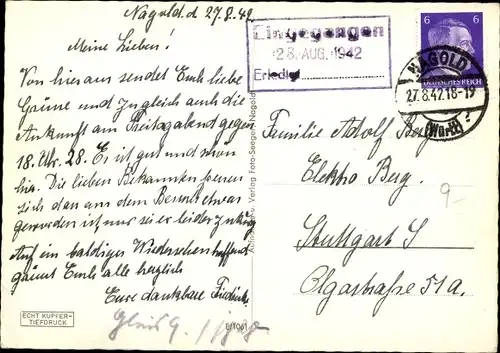 Nagold. d 27.8.42
Meine Lieben!
Von hier aus sendet Euch liebe
Grüsse und zugleich auch die
Ankunft am Freitagabend gegen
18. Uhr. 28. Es ist gut und schön
hier. Die lieben Bekannten freuen
sich das aus dem Besuch etwas
geworden ist, nur sei er leider zu kurz
Auf ein baldiges Wiedersehen hoffend
grüsst Euch alle herzlich
Eure dankbare
Gleis 9.
ECHT KUPFER-
TIEFDRUCK
Verlag Foto-Seeger Nagold
E/1061
Eingegangen
28. AUG. 1942
Erledigt
6 6
DEUTSCHES REICH
NAGOLD
27.8.42.18-19
(Württ)
Familie Adolf Berg
Elektro Berg
9-
Stuttgart S
Olgastraße 51a.